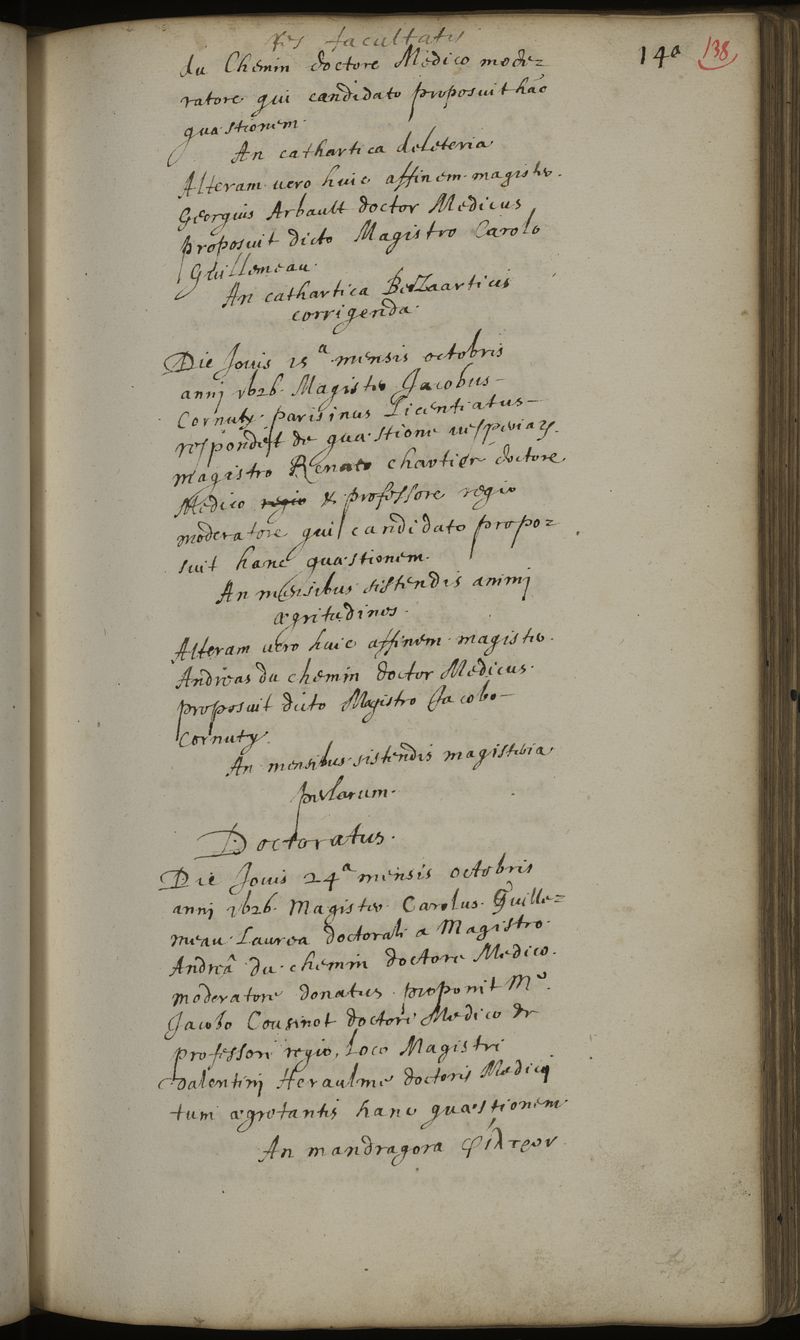 res facultatis
14a 138
du Chemin doctore Medico mode=
ratore qui candidato proposuit hāc
quæstionem.
An cathartica deleteria
Alteram uero huic affinem magister
Georgius Arbault doctor Medicus
proposuit dicto Magistro Carolo
Guillemeau.
An cathartica Bezaarticis
corrigenda.
Die Jouis 15a mensis octobris
annj 1626. Magister Jacobus
Cornuty parisinus Licentiatus
respondit de quæstione uesperiaꝝ
magistro Renato chartier doctore
Medico regio & professore regio
moderatore qui candidato propo=
suit hanc quæstionem.
An mensibus sistendis animj
ægritudines.
Alteram uero huic affinem magister
Andreas du chemin doctor Medicus.
proposuit dicto Magistro Jacobo
Cornuty.
An mensibus sistendis magisteria
perlarum.
Doctoratus.
Die Jouis 24a mensis octobris
annj 1626. Magister Carolus Guille=
meau Laurea doctorali a Magistro
Andreâ du chemin doctore Medico.
moderatore donatus proponit Mo.
Jacobo Cousinot doctori Medico &
professori regio, Loco Magistri
Valentinj Heraulme doctoris Medicj
tum ægrotantis hanc quæstionem
An mandragora φίλτρον